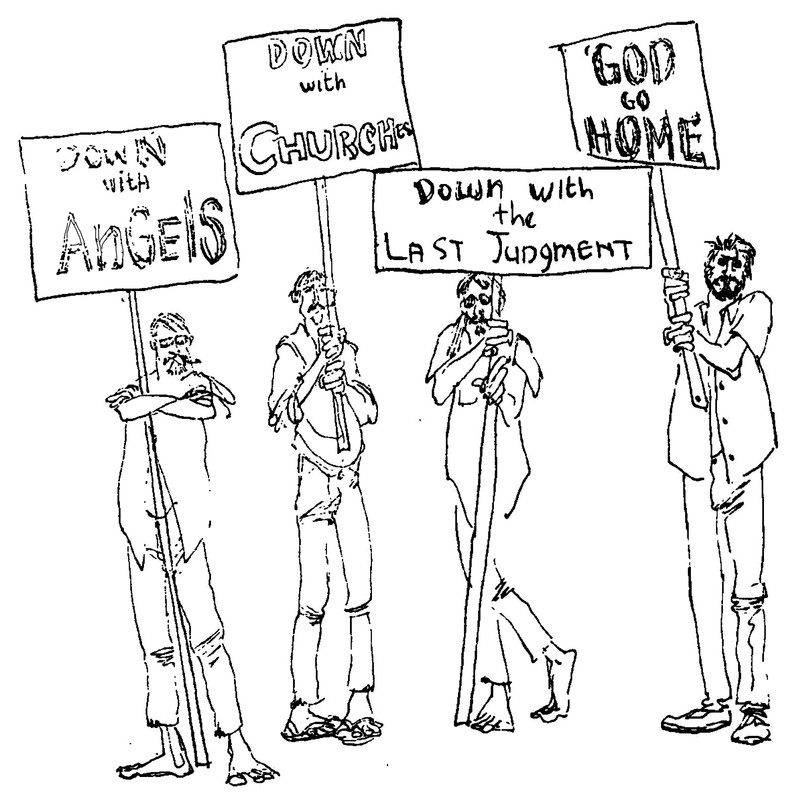 DOWN
with
CHURCHes
'GOD
GO
HOME
DOWN
with
AnGElS
Down with
the
LAST JudgMENT